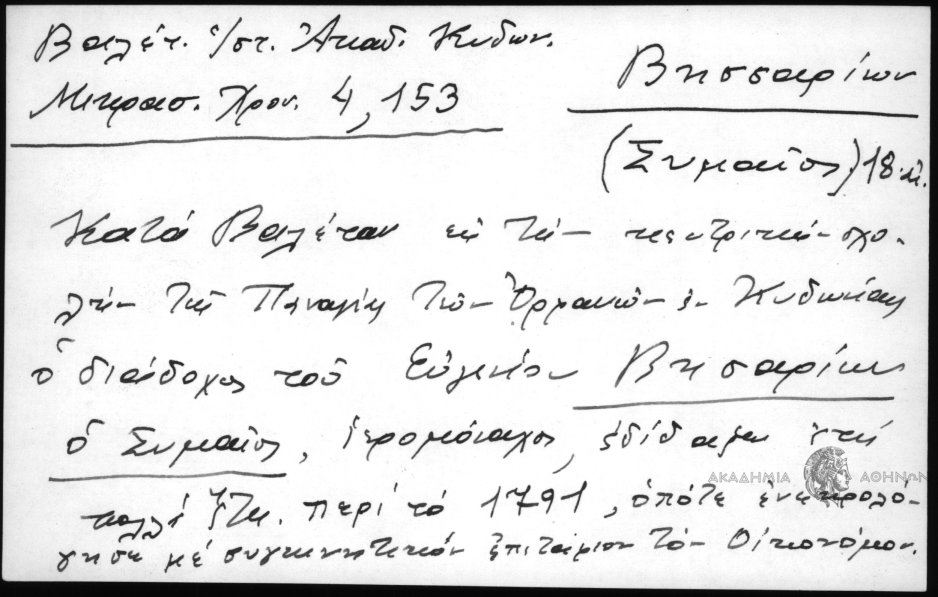 Βαλέτ. ἱ/στ. Ἀκαδ. Κυδων.
Μικρασ. Χρον. 4, 153
Βησσαρίων
(Συμαῖος) 18 αἰ.
Κατά Βαλέταν εἰς τήν κεντρικήν σχο-
λήν τῆς Παναγίας τῶν Ὀρφανῶν ἐν Κυδωνίαις
ὁ διάδοχος τοῦ Εὐγενίου Βησσαρίων
ὁ Συμαῖος, ἱερομόναχος, ἐδίδαξεν ἐπί
πολλά ἔτη. περί τό 1791, ὁπότε ἐνεκρολό-
γησε μέ συγκινητικόν ἐπιτάφιον τόν Οἰκονόμον.
ΑΚΑΔΗΜΙΑ ΑΘΗΝΩΝ